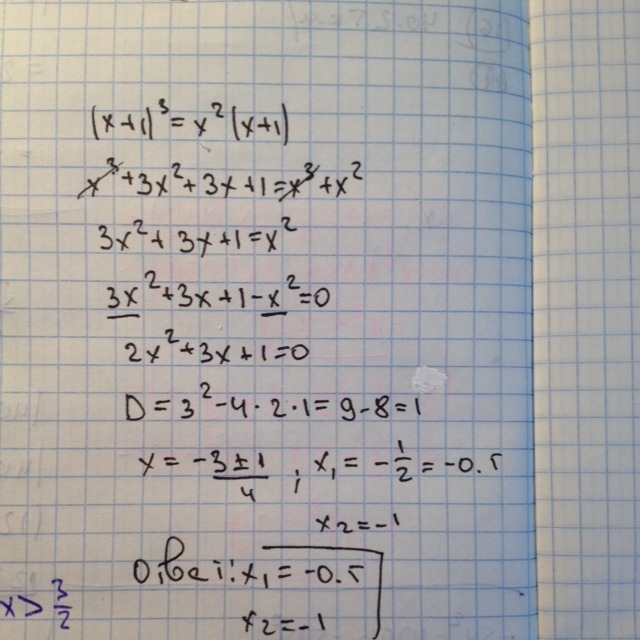 (x+1)³ = x² (x+1)
x³ + 3x² + 3x + 1 = x³ + x²
3x² + 3x + 1 = x²
3x² + 3x + 1 - x² = 0
2x² + 3x + 1 = 0
D = 3² - 4 · 2 · 1 = 9 - 8 = 1
x = -3 ± 1 / 4 ; x₁ = -1/2 = -0.5
x₂ = -1
Ответ: x₁ = -0.5
x₂ = -1
x > 3/2